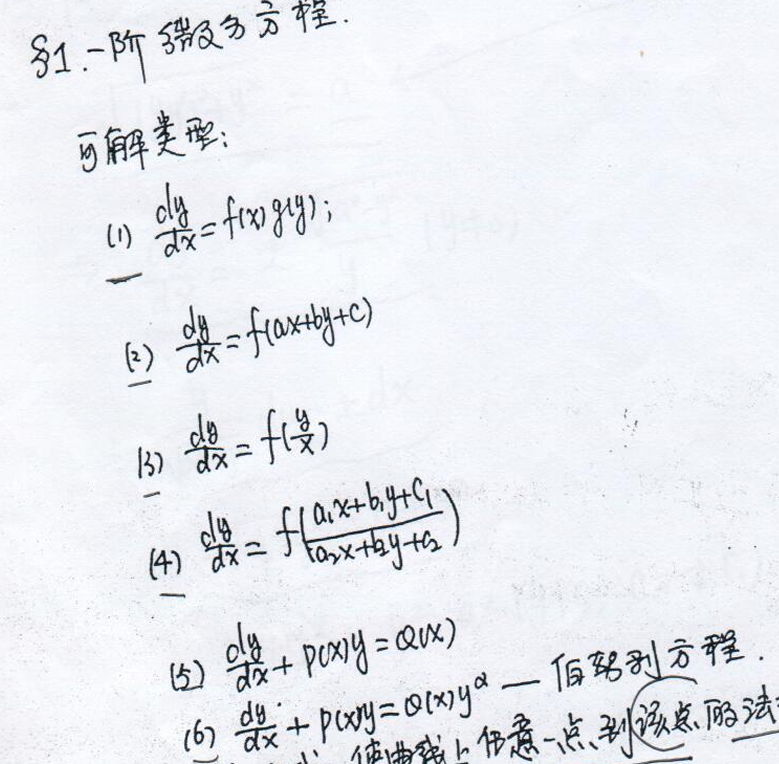 §1.一阶微分方程.
可解类型:
(1) dy/dx = f(x)g(y);
(2) dy/dx = f(ax+by+c)
(3) dy/dx = f(y/x)
(4) dy/dx = f((a₁x+b₁y+c₁)/(a₂x+b₂y+c₂))
(5) dy/dx + p(x)y = Q(x)
(6) dy/dx + p(x)y = Q(x)y^α — 伯努利方程.
使曲线上任意一点到该点的法